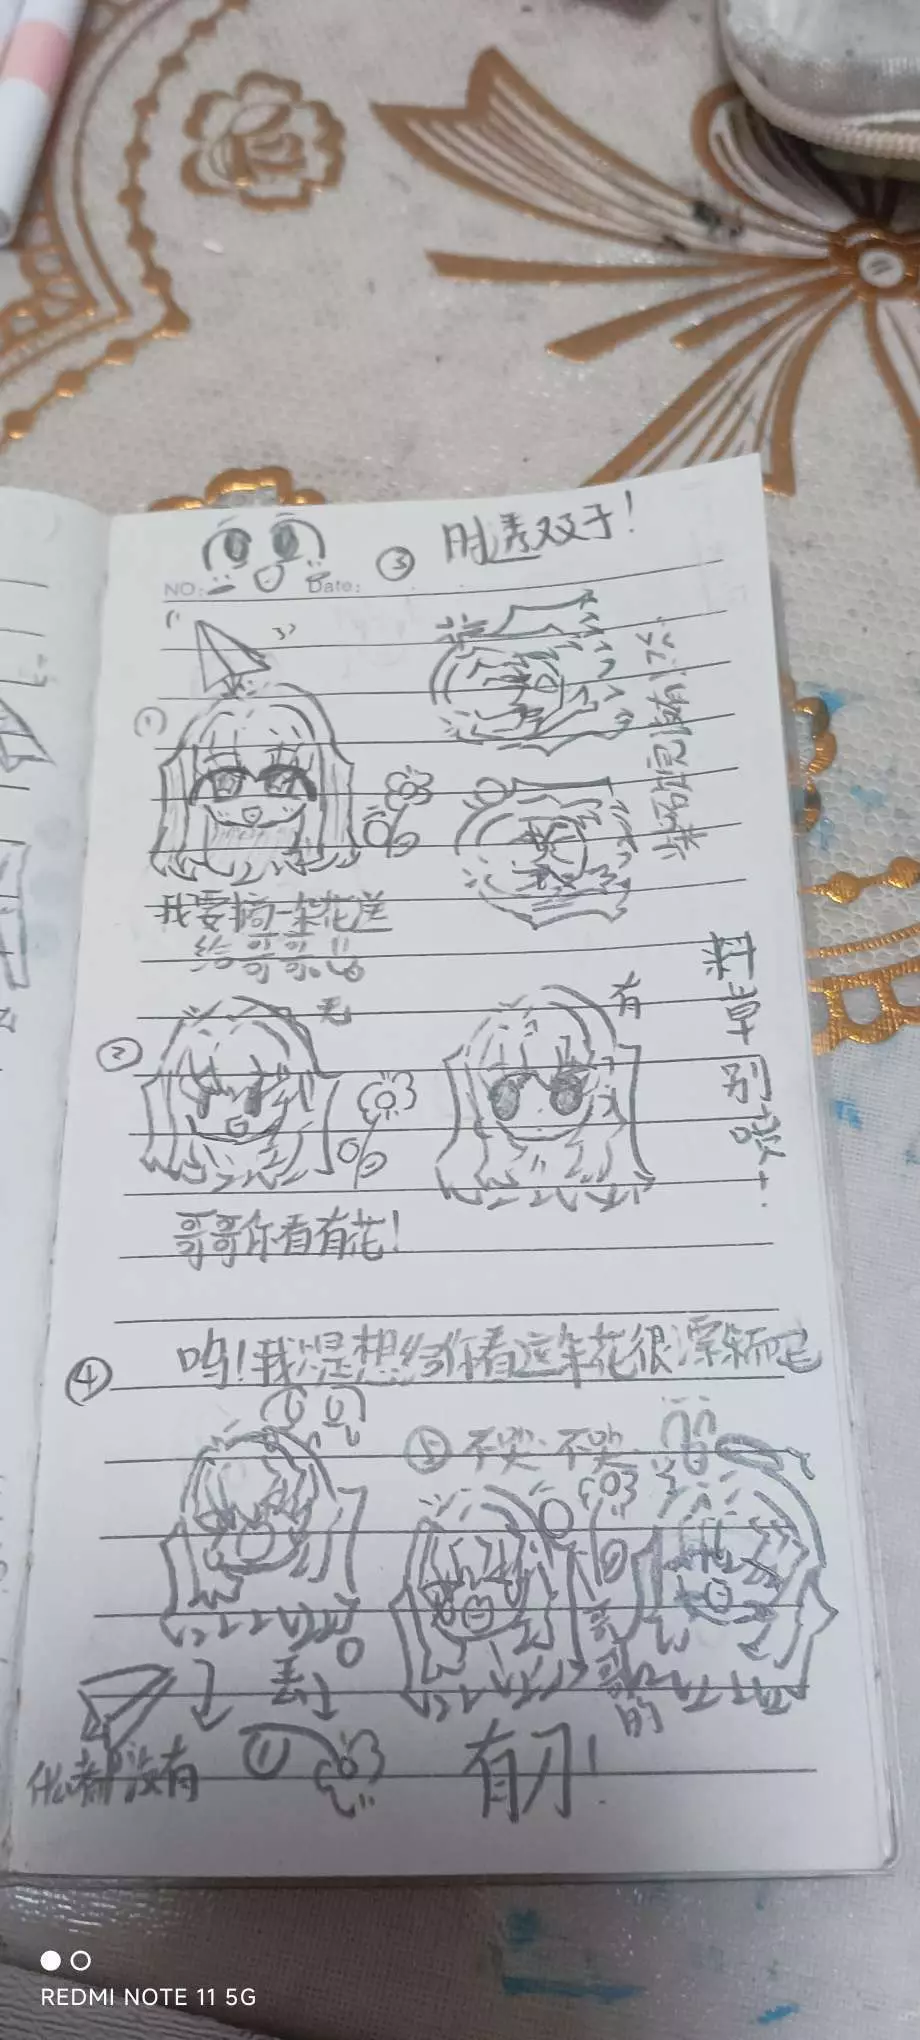 ③ 时透双子!
NO: Date:
①
我要摘一朵花送
给哥哥
② 无 有
哥哥你看有花!
潦草别喷!
④ 呜!我只是想给你看这朵花很漂亮而已
⑤ 不哭 不哭
哥哥的
无
什么都没有
有刀!
REDMI NOTE 11 5G